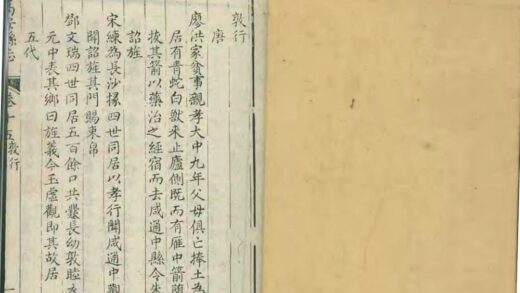 敦行
唐
廖洪家貧事親孝大中九年父母俱亡捧土為
居有青蛇白獸來止廬側既而有雁中箭隨
拔其箭以藥治之經宿而去咸通中縣令朱
詔旌
宋練為長沙掾四世同居以孝行聞咸通中觀
聞詔旌其門賜束帛
鄧文瑞四世同居五百餘口共爨長幼敦睦
元中表其鄉曰旌義今玉虛觀即其故居
五代
縣志
卷十五敦行